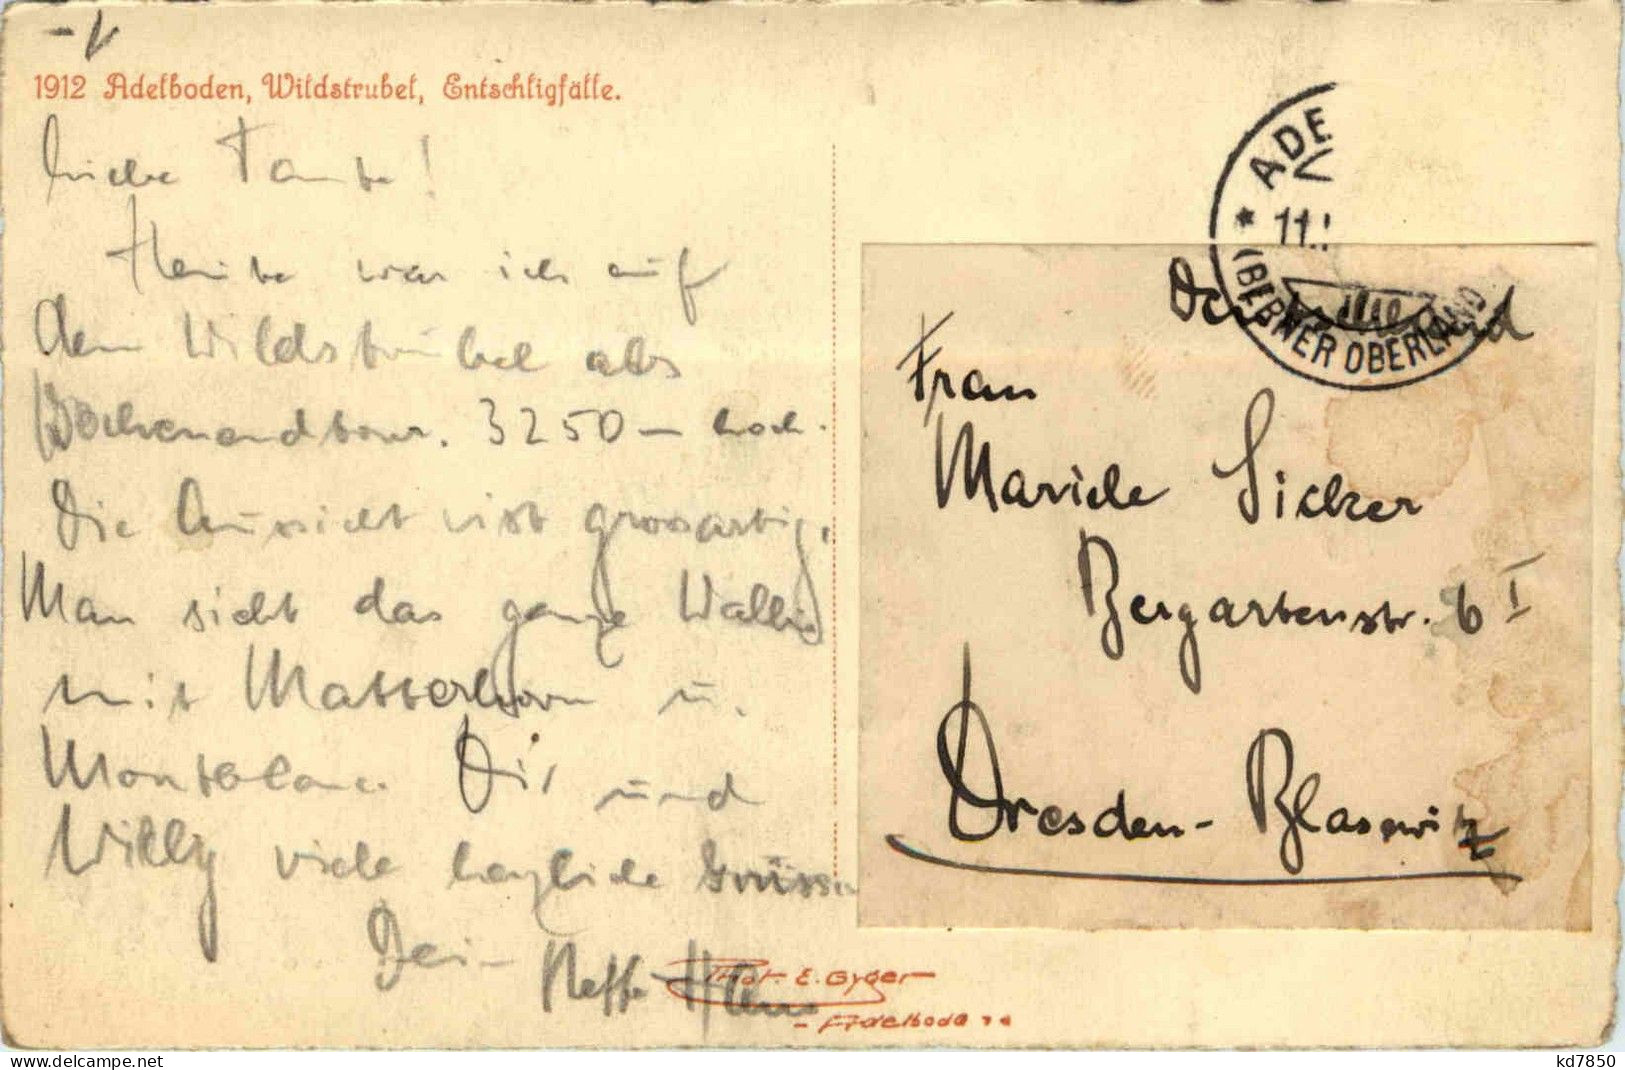 1912 Adelboden, Wildstrubel, Entschligfälle.
Liebe Tante!
Heute war ich auf
dem Wildstrubel als
Wochenendtour. 3250 m hoch.
Die Aussicht ist grossartig.
Man sieht das ganze Wallis
mit Matterhorn u.
Montblanc. Dir und
Willy viele herzliche Grüsse
Dein Neffe Hans
Phot. E. Gyger
- Adelboden
ADE
11.
(BERNER OBERLAND
Frau
Mariele Sicker
Bergartenstr. 6 I
Dresden-Blasewitz
delcampe.net
kd7850